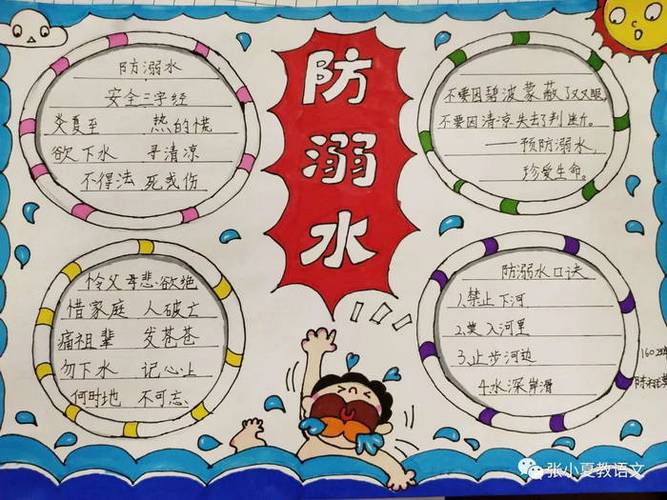 防溺水
防溺水
安全三字经
炎夏至 热的慌
欲下水 寻清凉
不得法 死或伤
不要因碧波蒙蔽了双眼,
不要因清凉失去了判断。
——预防溺水,
珍爱生命。
怜父母悲欲绝
惜家庭 人破亡
痛祖辈 发苍苍
勿下水 记心上
何时地 不可忘
防溺水口诀
1.禁止下河
2.莫入河里
3.止步河边
4.水深岸滑
张小夏教语文